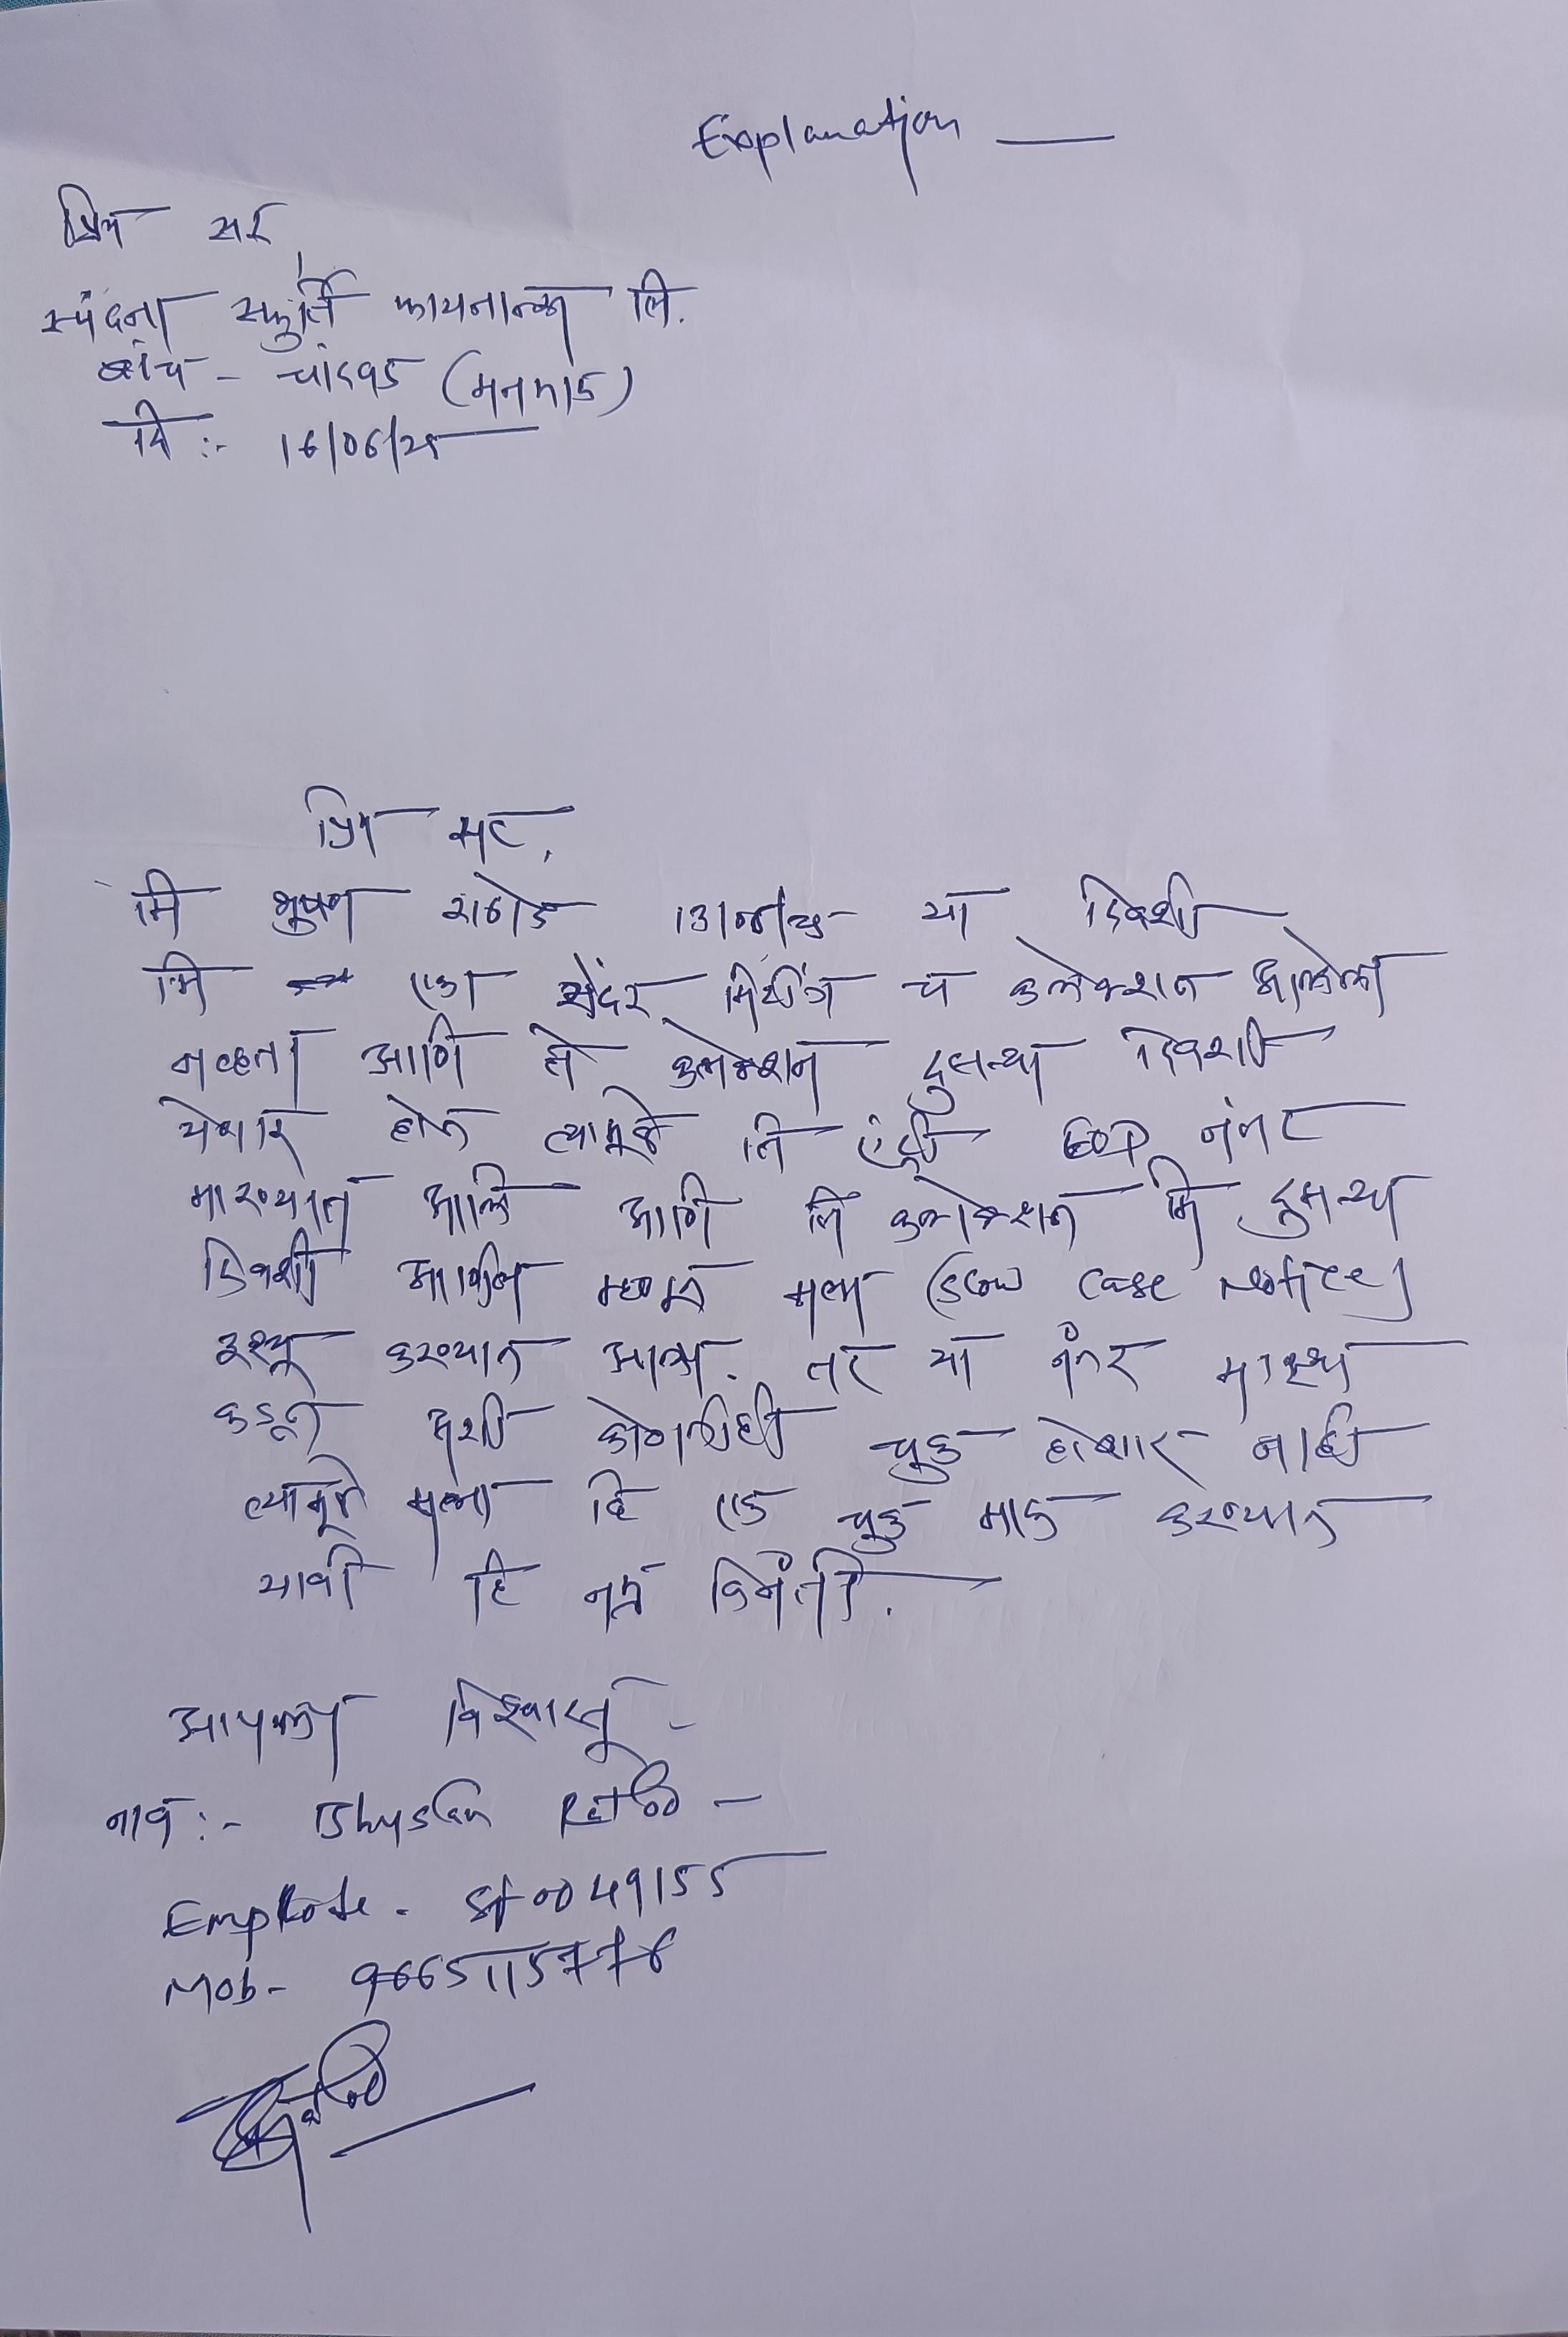 Explanation
प्रिय सर,
स्पंदना स्फुर्ति फायनान्स लि.
ब्रांच - चांदवड (मनमाड)
दि :- 16/06/25
प्रिय सर,
मि भुषण राठोड या दिवशी
मि एका सेंटर मिटींग च कलेक्शन आलेला
नव्हता आणि ते कलेक्शन दुसऱ्या दिवशी
येणार होत त्यामूळे ति एंट्री EOD नंतर
मारण्यात आलि आणि ति कलेक्शन मि दुसऱ्या
दिवशी मला (Scow Case Notice)
इश्यू करण्यात आला. तर या नंतर माझ्या
कडून अशी कोणतीही चुक होणार नाही
त्यामूळे मला हि एक चूक माफ करण्यात
यावी हि नम्र विनंती.
आपला विश्वासू -
नाव :- Bhushan Rathod -
EmpCode. Sf0049155
Mob- 9665115776